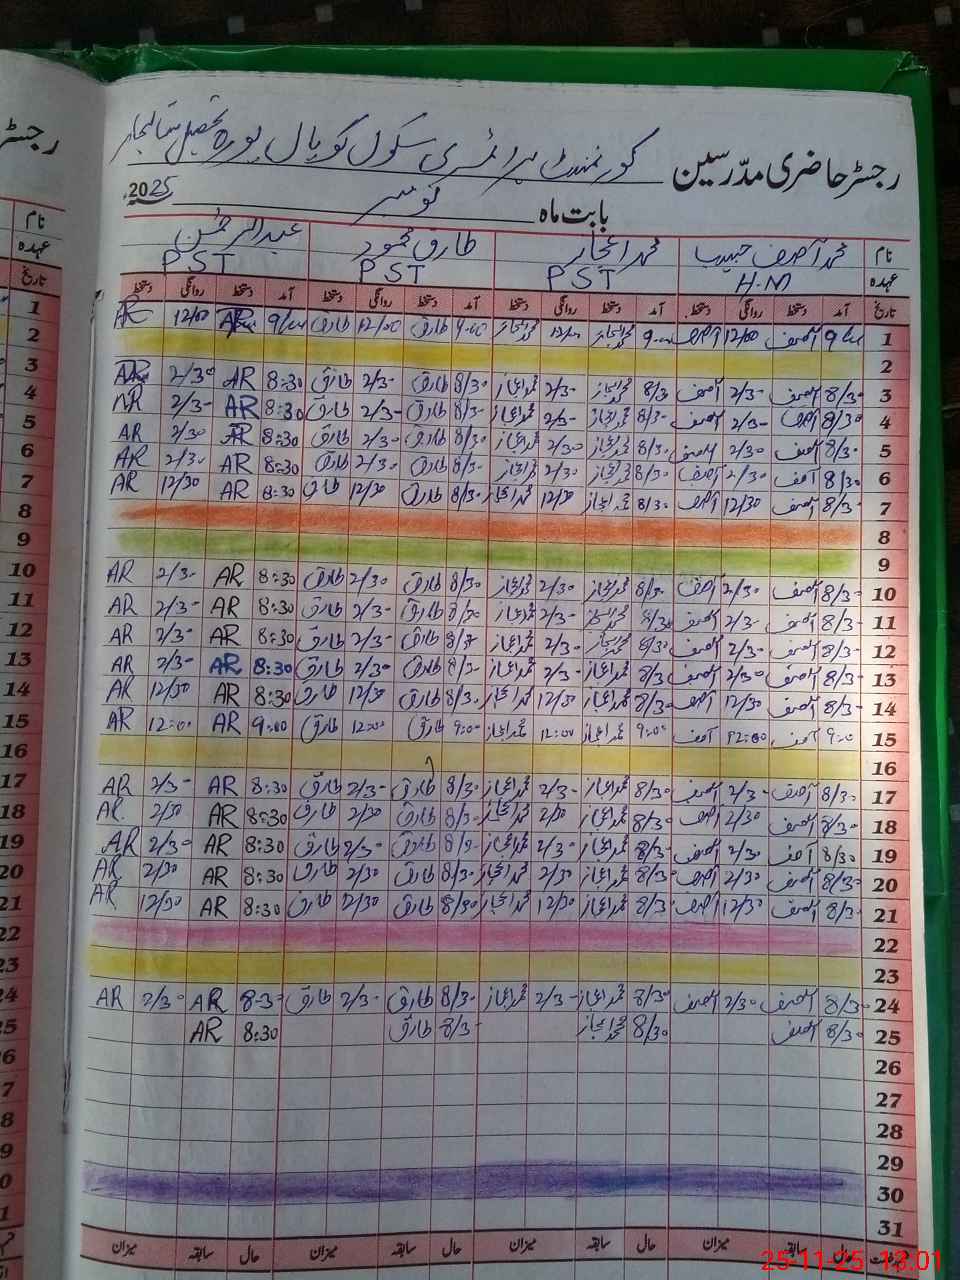 رجسٹر حاضری مدرسین گورنمنٹ پرائمری سکول گوپال پورہ تحصیل
بابت ماہ نومبر 2025ء
نام محمد آصف حبیب محمد اعجاز طارق محمود عبدالرحمٰن
عہدہ H.M PST PST PST
تاریخ آمد دستخط روانگی دستخط آمد دستخط روانگی دستخط آمد دستخط روانگی دستخط آمد دستخط روانگی دستخط
1 آصف 12/00 آصف 9:00 محمد اعجاز محمد اعجاز 9:00 طارق 12/00 طارق AR 12/00 AR
2
3 8/30 آصف 2/30 آصف 8/30 محمد اعجاز 2/30 محمد اعجاز 8/30 طارق 2/30 طارق 8:30 AR 2/30 AR
4 8/30 آصف 2/30 آصف 8/30 محمد اعجاز 2/30 محمد اعجاز 8/30 طارق 2/30 طارق 8:30 AR 2/30 AR
5 8/30 آصف 2/30 آصف 8/30 محمد اعجاز 2/30 محمد اعجاز 8/30 طارق 2/30 طارق 8:30 AR 2/30 AR
6 8/30 آصف 2/30 آصف 8/30 محمد اعجاز 2/30 محمد اعجاز 8/30 طارق 2/30 طارق 8:30 AR 2/30 AR
7 8/30 آصف 12/30 آصف 8/30 محمد اعجاز 12/30 محمد اعجاز 8/30 طارق 12/30 طارق 8:30 AR 12/30 AR
8
9
10 8/30 آصف 2/30 آصف 8/30 محمد اعجاز 2/30 محمد اعجاز 8/30 طارق 2/30 طارق 8:30 AR 2/30 AR
11 8/30 آصف 2/30 آصف 8/30 محمد اعجاز 2/30 محمد اعجاز 8/30 طارق 2/30 طارق 8:30 AR 2/30 AR
12 8/30 آصف 2/30 آصف 8/30 محمد اعجاز 2/30 محمد اعجاز 8/30 طارق 2/30 طارق 8:30 AR 2/30 AR
13 8/30 آصف 2/30 آصف 8/30 محمد اعجاز 2/30 محمد اعجاز 8/30 طارق 2/30 طارق 8:30 AR 2/30 AR
14 8/30 آصف 12/30 آصف 8/30 محمد اعجاز 12/30 محمد اعجاز 8/30 طارق 12/30 طارق 8:30 AR 12/30 AR
15 9:0 آصف 12:00 آصف 9:00 محمد اعجاز 12:00 محمد اعجاز 9:00 طارق 12:00 طارق 9:00 AR 12:00 AR
16
17 8/30 آصف 2/30 آصف 8/30 محمد اعجاز 2/30 محمد اعجاز 8/30 طارق 2/30 طارق 8:30 AR 2/30 AR
18 8/30 آصف 2/30 آصف 8/30 محمد اعجاز 2/30 محمد اعجاز 8/30 طارق 2/30 طارق 8:30 AR 2/30 AR
19 8/30 آصف 2/30 آصف 8/30 محمد اعجاز 2/30 محمد اعجاز 8/30 طارق 2/30 طارق 8:30 AR 2/30 AR
20 8/30 آصف 2/30 آصف 8/30 محمد اعجاز 2/30 محمد اعجاز 8/30 طارق 2/30 طارق 8:30 AR 2/30 AR
21 8/30 آصف 12/30 آصف 8/30 محمد اعجاز 12/30 محمد اعجاز 8/30 طارق 12/30 طارق 8:30 AR 12/30 AR
22
23
24 8/30 آصف 2/30 آصف 8/30 محمد اعجاز 2/30 محمد اعجاز 8/30 طارق 2/30 طارق 8:30 AR 2/30 AR
25 8/30 آصف 8/30 محمد اعجاز 8/30 طارق 8:30 AR
26
27
28
29
30
31
حال سابقہ میزان حال سابقہ میزان حال سابقہ میزان حال سابقہ میزان
25-11-25 13:01